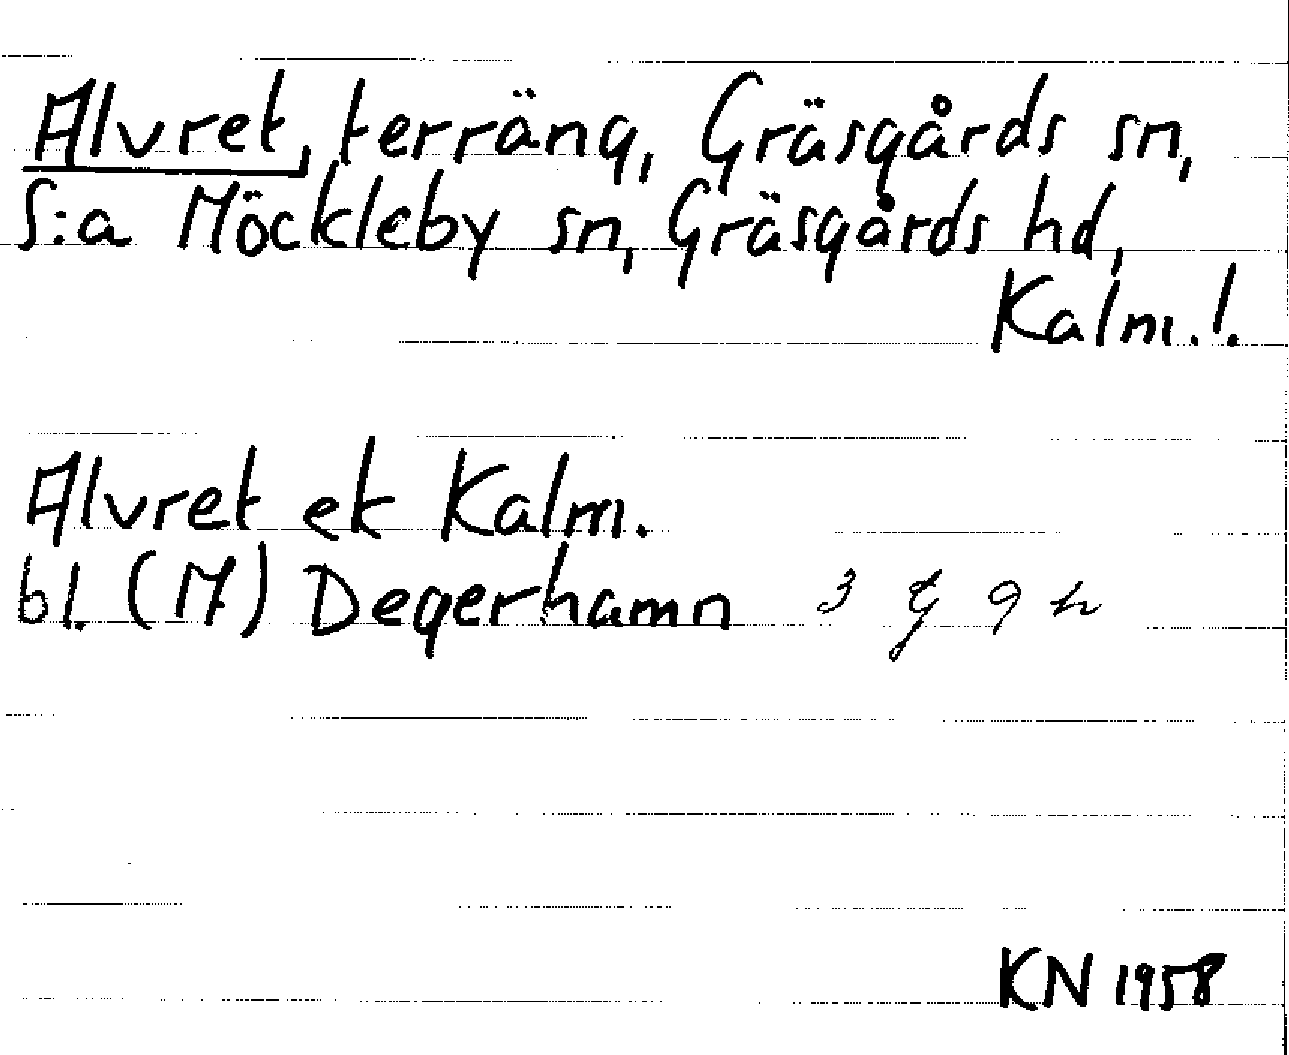 Alvret, terräng, Gräsgårds sn,
S:a Möckleby sn, Gräsgårds hd,
Kalm.!.
Alvret ek Kalm.
bl. (M) Degerhamn 3 g 9 h
KN 1958